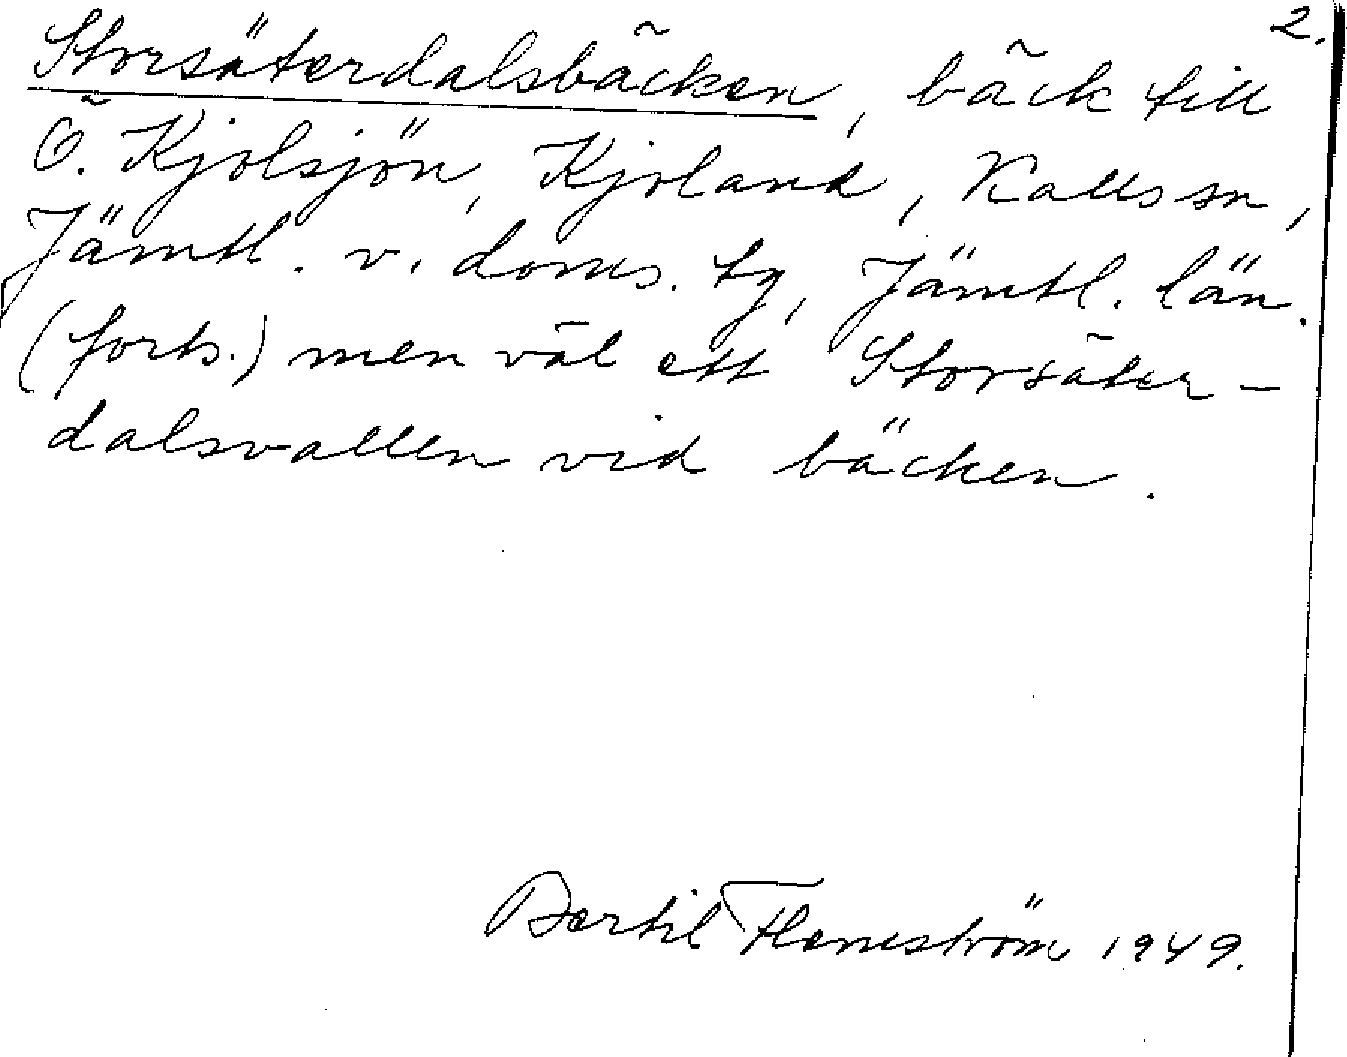 2.
Storsäterdalsbäcken, bäck till
Ö. Kjolsjön, Kjoland, Kalls sn,
Jämtl. v. doms. tg, Jämtl. län.
(forts.) men väl ett Storsäter-
dalsvallen vid bäcken.
Bertil Flemström 1949.